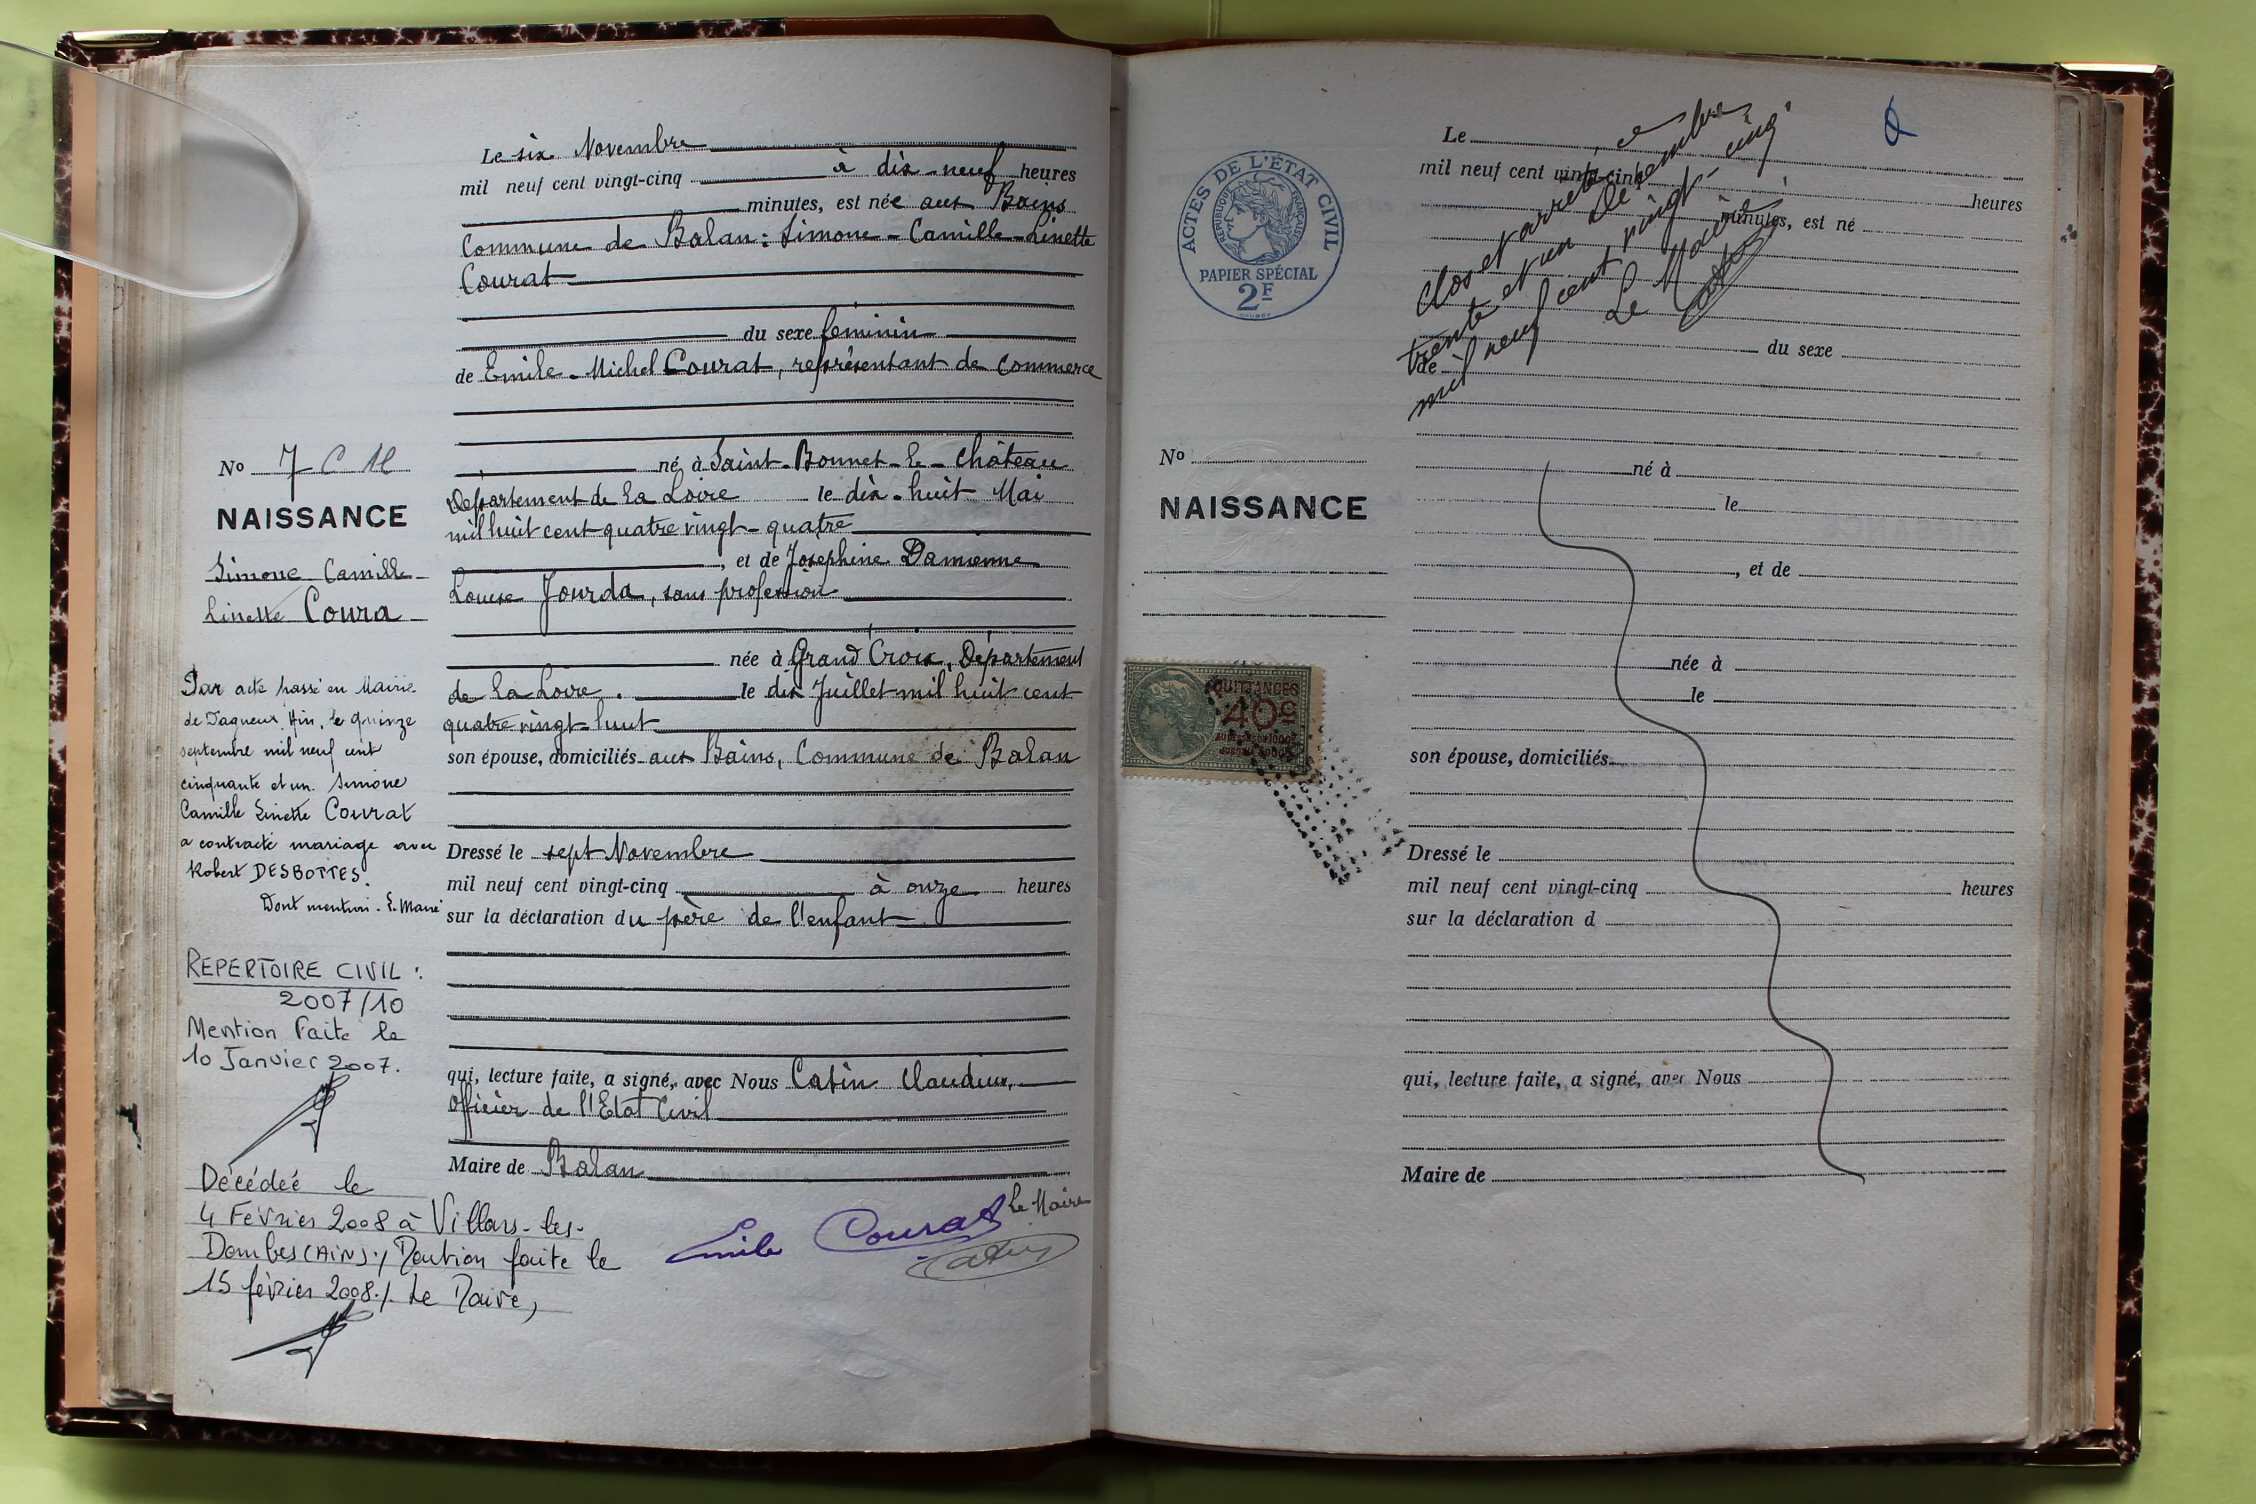 Le six Novembre
mil neuf cent vingt-cinq à dix-neuf heures
minutes, est née aux Bains
Commune de Balan : Simone - Camille - Linette
Courat
du sexe féminin
de Emile - Michel Courat, représentant de Commerce
né à Saint-Bonnet-le-Château
Département de la Loire le dix-huit Mai
mil huit cent quatre vingt-quatre
, et de Josephine Damienne
Louise Jourda, sans profession
née à Grand'Croix, Département
de la Loire. le dix Juillet mil huit cent
quatre vingt-huit
son épouse, domiciliés aux Bains, Commune de Balan
Dressé le sept Novembre
mil neuf cent vingt-cinq à onze heures
sur la déclaration du père de l'enfant
qui, lecture faite, a signé, avec Nous Catin Claudius,
Officier de l'Etat Civil
Maire de Balan
Le Maire
Emile Courat
Catin
No 7
NAISSANCE
Simone Camille
Linette Coura
Par acte passé en Mairie
de Ain, le quinze
septembre mil neuf cent
cinquante et un. Simone
Camille Linette Courat
a contracté mariage avec
Robert DESBOTTES.
Dont mention.
REPERTOIRE CIVIL :
2007/10
Mention faite le
10 Janvier 2007.
Décédée le
4 Février 2008 à Villars-les-
Dombes (AIN)./ Mention faite le
15 février 2008./. Le Maire,
ACTES DE L'ÉTAT CIVIL
RÉPUBLIQUE FRANÇAISE
PAPIER SPÉCIAL
2F
No
NAISSANCE
QUITTANCES
40c
Le
mil neuf cent vingt-cinq
heures
minutes, est né
Clos et arrêté ce
trente et un Décembre
mil neuf cent vingt-cinq.
Le Maire
du sexe
de
né à
le
, et de
née à
le
son épouse, domiciliés
Dressé le
mil neuf cent vingt-cinq heures
sur la déclaration d
qui, lecture faite, a signé, avec Nous
Maire de